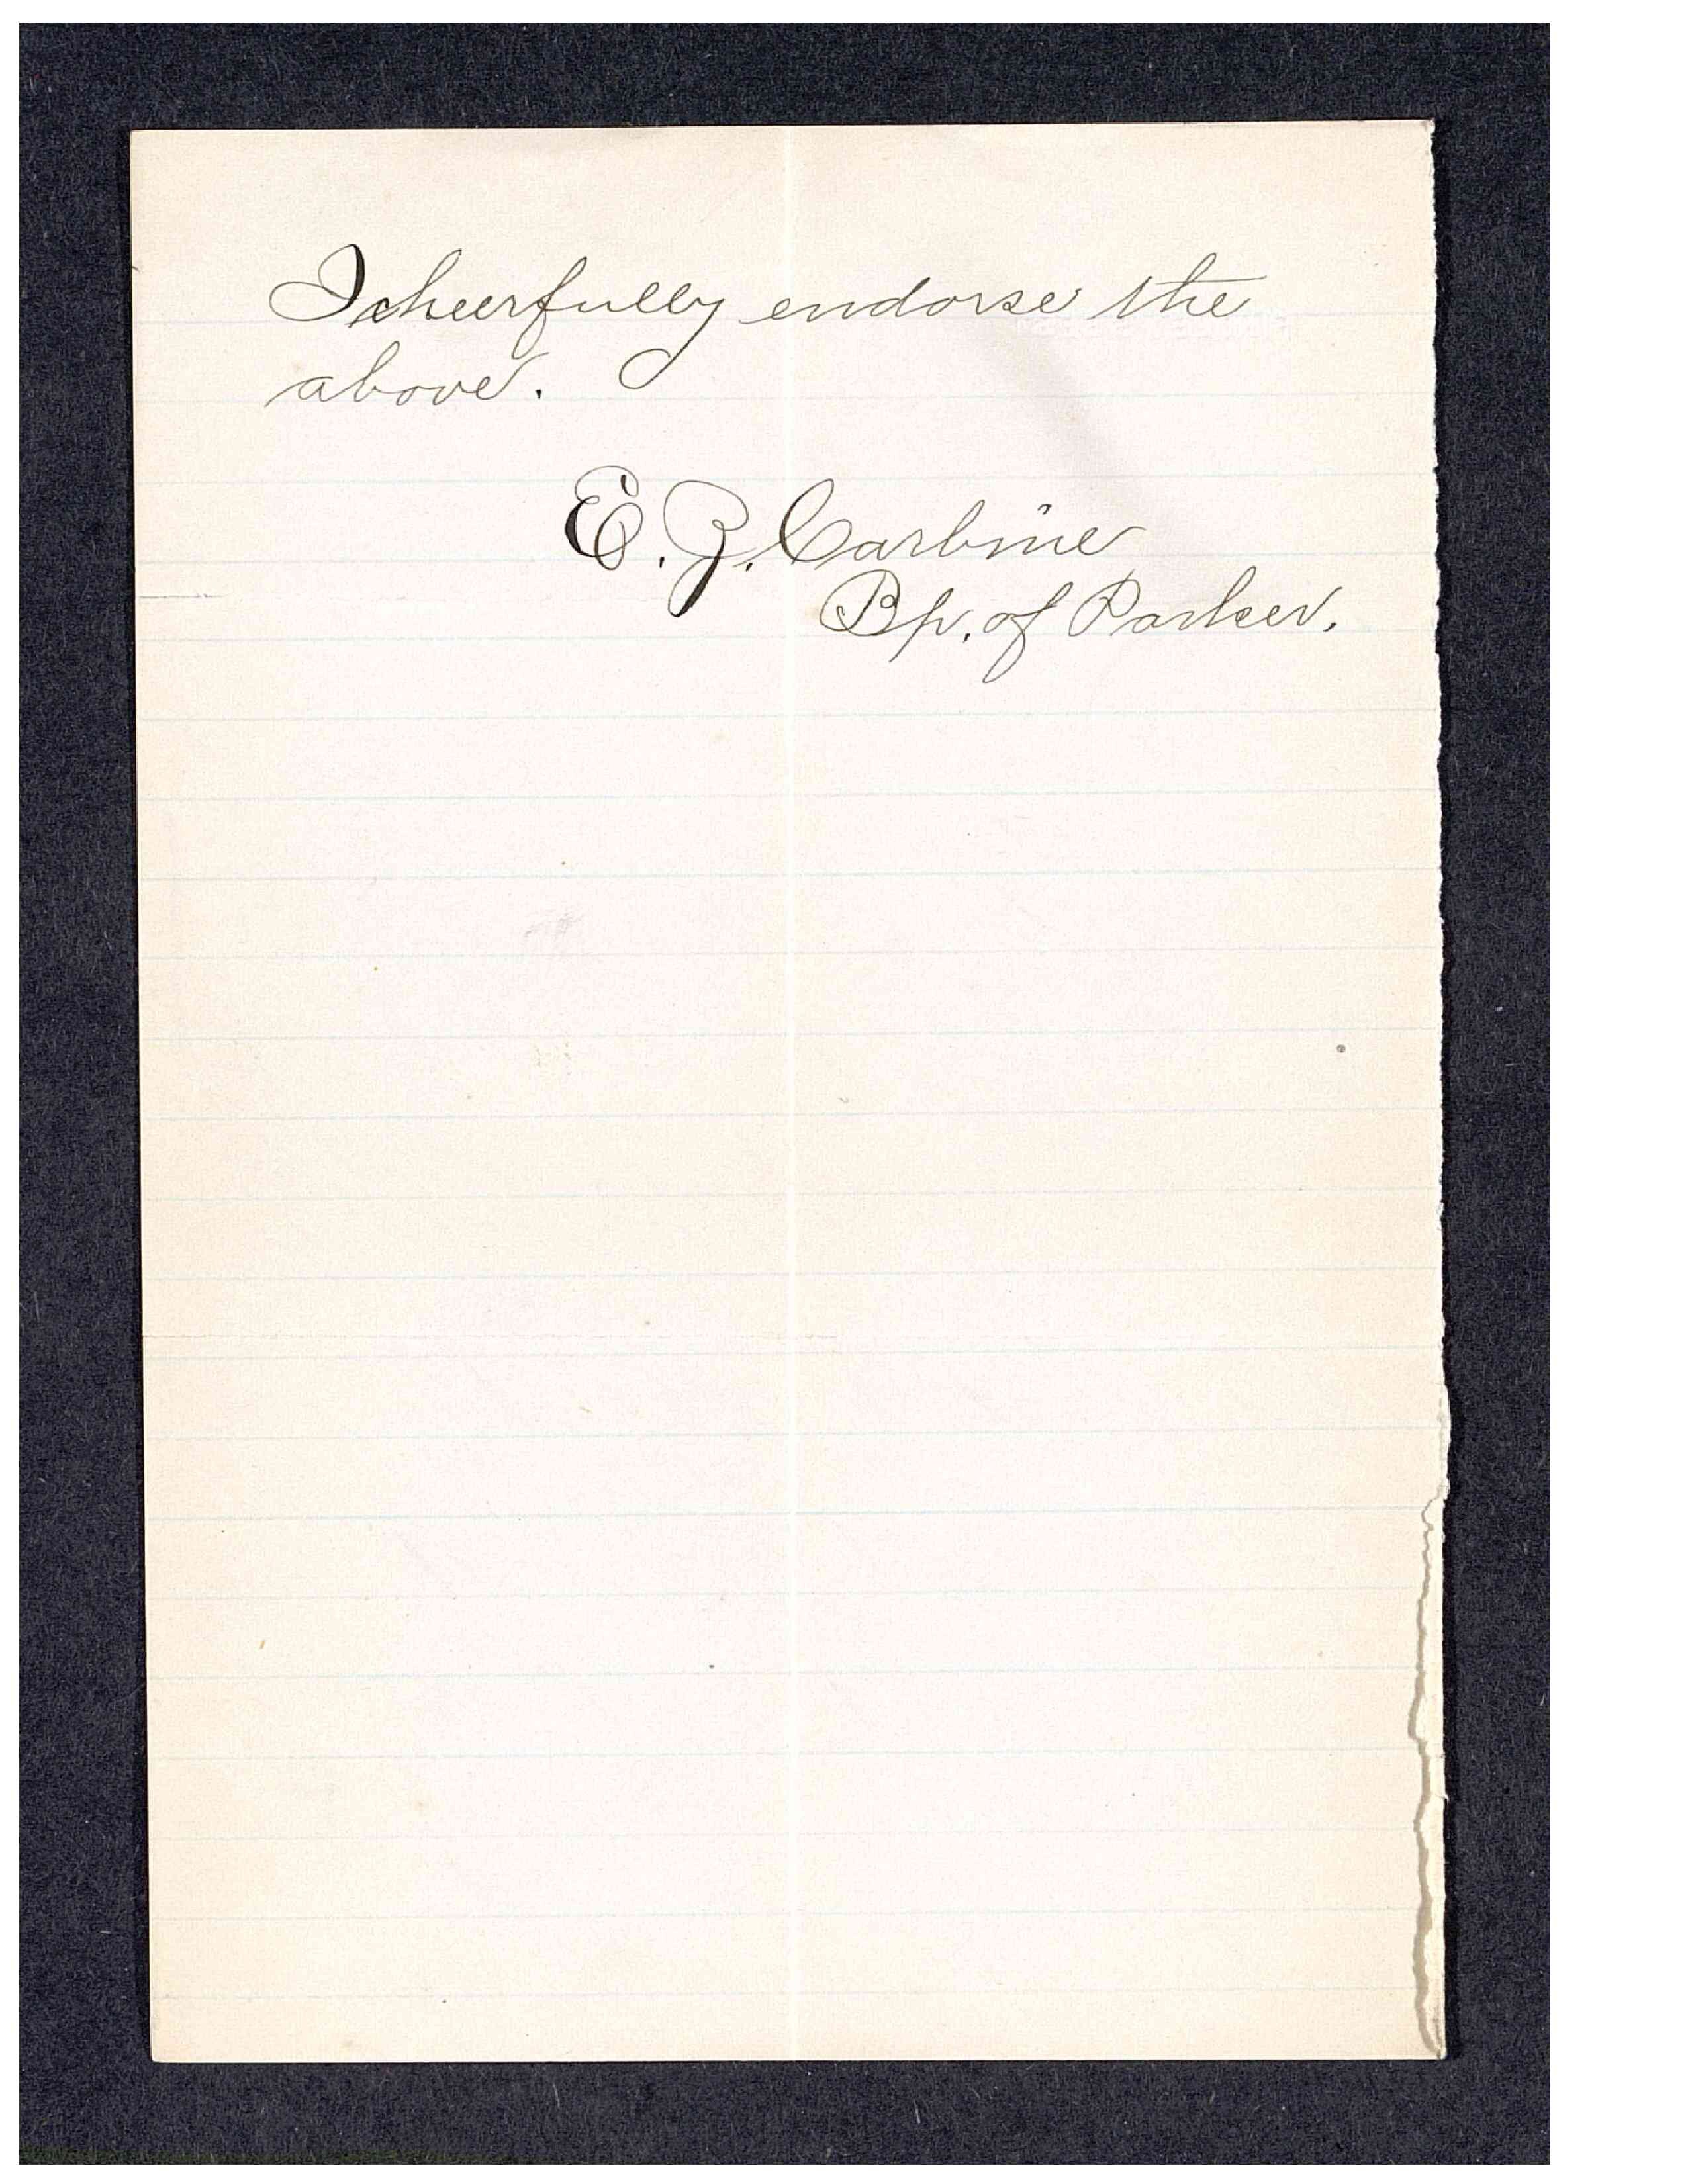 I cheerfully endorse the
above.
E. Z. Carbine
Bp. of Parker.